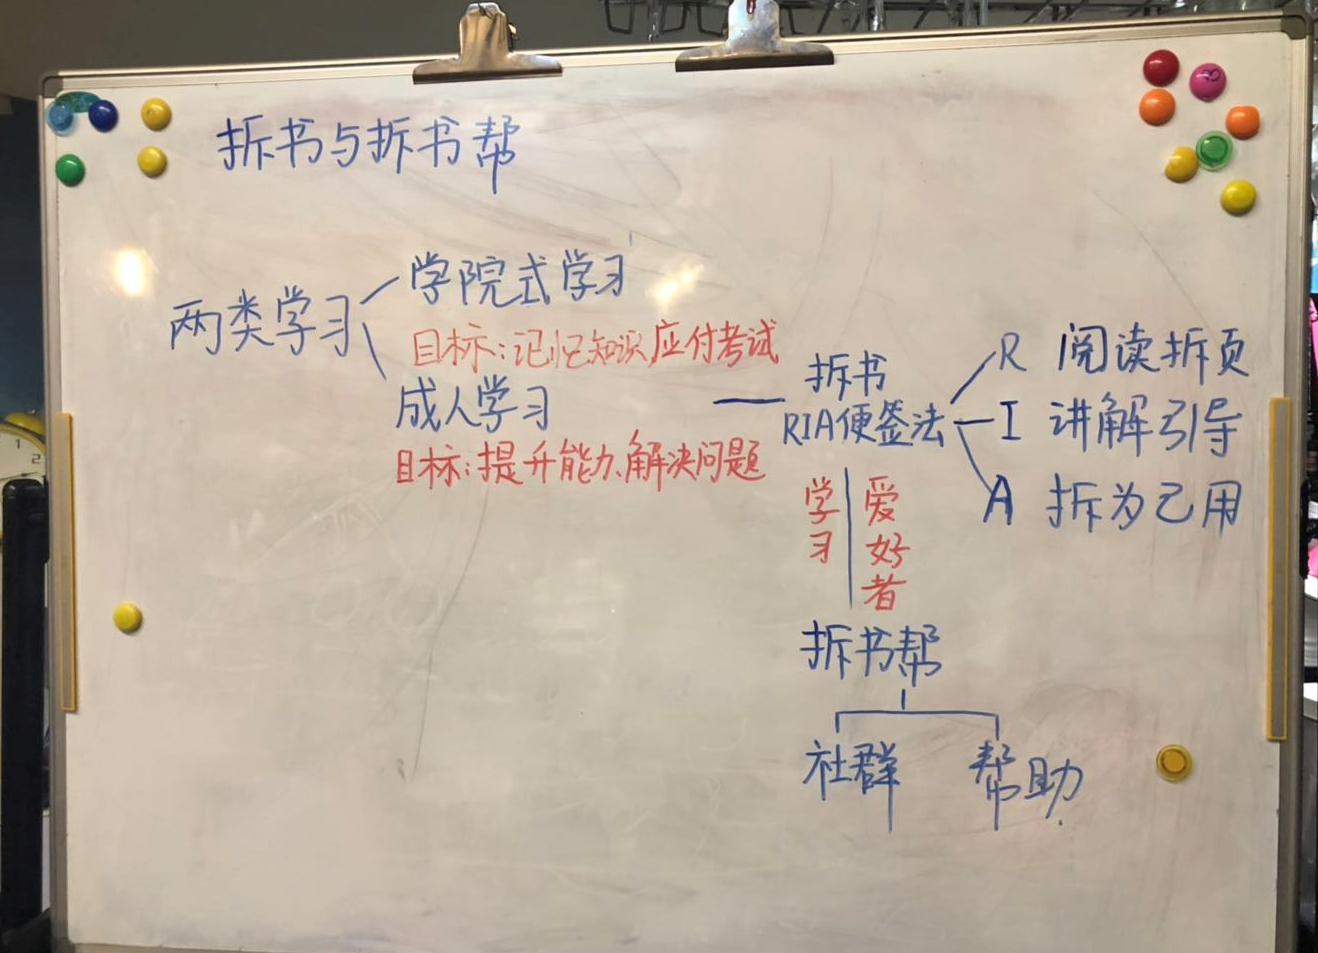 拆书与拆书帮
两类学习
学院式学习
目标:记忆知识应付考试
成人学习
目标:提升能力、解决问题
拆书
RIA便签法
R 阅读拆页
I 讲解引导
A 拆为己用
学习
爱好者
拆书帮
社群
帮助
1
2